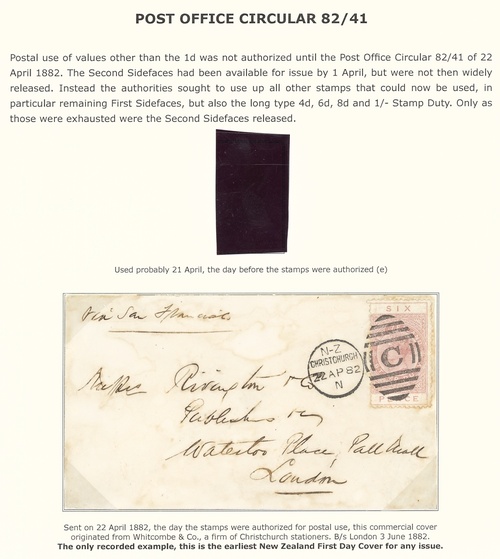 POST OFFICE CIRCULAR 82/41
Postal use of values other than the 1d was not authorized until the Post Office Circular 82/41 of 22
April 1882. The Second Sidefaces had been available for issue by 1 April, but were not then widely
released. Instead the authorities sought to use up all other stamps that could now be used, in
particular remaining First Sidefaces, but also the long type 4d, 6d, 8d and 1/- Stamp Duty. Only as
those were exhausted were the Second Sidefaces released.
Used probably 21 April, the day before the stamps were authorized (e)
Via San Francisco
SIX
N-Z
CHRISTCHURCH
22 AP 82
N
C
PENCE
Rivington
Publishers
Waterloo Place, Pall Mall
London
Sent on 22 April 1882, the day the stamps were authorized for postal use, this commercial cover
originated from Whitcombe & Co., a firm of Christchurch stationers. B/s London 3 June 1882.
The only recorded example, this is the earliest New Zealand First Day Cover for any issue.